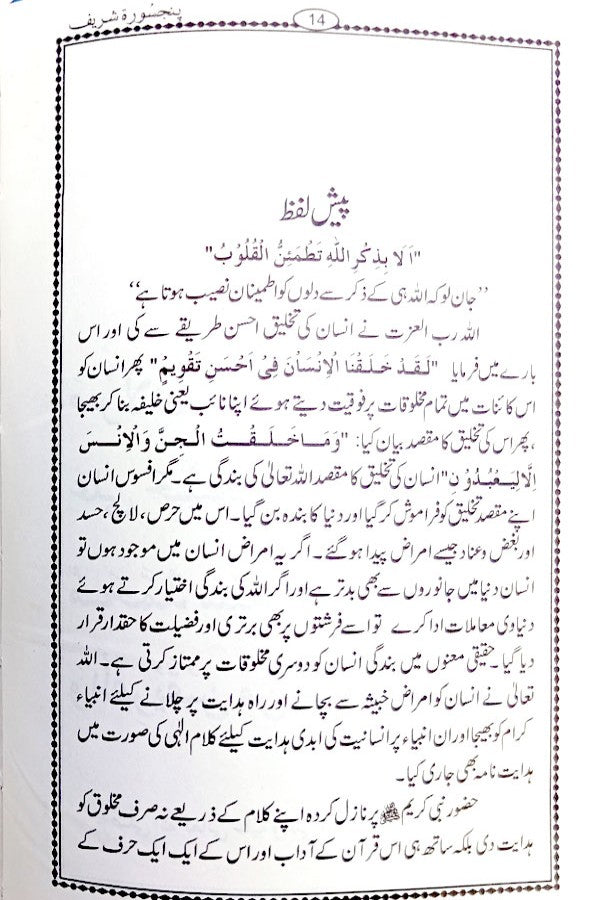 پنجسورۃ شریف
14
پیش لفظ
"اَلَا بِذِكْرِ اللّٰهِ تَطْمَئِنُّ الْقُلُوْبُ"
’’جان لوکہ اللہ ہی کے ذکر سے دلوں کو اطمینان نصیب ہوتا ہے‘‘
اللہ رب العزت نے انسان کی تخلیق احسن طریقے سے کی اور اس
بارے میں فرمایا "لَقَدْ خَلَقْنَا الْاِنْسَانَ فِیْ اَحْسَنِ تَقْوِیْمٍ" پھر انسان کو
اس کائنات میں تمام مخلوقات پر فوقیت دیتے ہوئے اپنا نائب یعنی خلیفہ بنا کر بھیجا
،پھر اس کی تخلیق کا مقصد بیان کیا: "وَمَا خَلَقْتُ الْجِنَّ وَالْاِنْسَ
اِلَّا لِیَعْبُدُوْنِ" انسان کی تخلیق کا مقصد اللہ تعالیٰ کی بندگی ہے۔ مگر افسوس انسان
اپنے مقصد تخلیق کو فراموش کر گیا اور دنیا کا بندہ بن گیا۔ اس میں حرص، لالچ، حسد
اور بغض وعناد جیسے امراض پیدا ہو گئے۔ اگر یہ امراض انسان میں موجود ہوں تو
انسان دنیا میں جانوروں سے بھی بدتر ہے اور اگر اللہ کی بندگی اختیار کرتے ہوئے
دنیاوی معاملات ادا کرے تو اسے فرشتوں پر بھی برتری اور فضیلت کا حقدار قرار
دیا گیا۔ حقیقی معنوں میں بندگی انسان کو دوسری مخلوقات پر ممتاز کرتی ہے۔ اللہ
تعالیٰ نے انسان کو امراض خبیثہ سے بچانے اور راہ ہدایت پر چلانے کیلئے انبیاء
کرام کو بھیجا اور ان انبیاء پر انسانیت کی ابدی ہدایت کیلئے کلام الٰہی کی صورت میں
ہدایت نامہ بھی جاری کیا۔
حضور نبی کریم ﷺ پر نازل کردہ اپنے کلام کے ذریعے نہ صرف مخلوق کو
ہدایت دی بلکہ ساتھ ہی اس قرآن کے آداب اور اس کے ایک ایک حرف کے